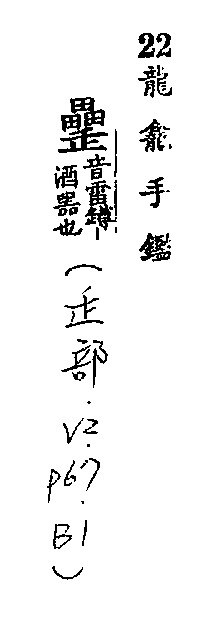 22 龍龕手鑑
音雷罇丨
酒器也
(正部.V2.P67.B1)